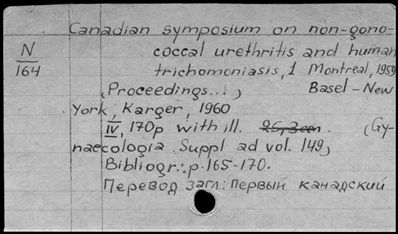 Canadian symposium on non-gono-
N
164
coccal urethritis and human
trichomoniasis, 1 Montreal, 1959
(Proceedings...) Basel - New
York, Karger, 1960
IV, 170p with ill. (Gy-
naecologia. Suppl ad vol. 149)
Bibliogr.: p. 165-170.
Перевод загл.: Первый канадский